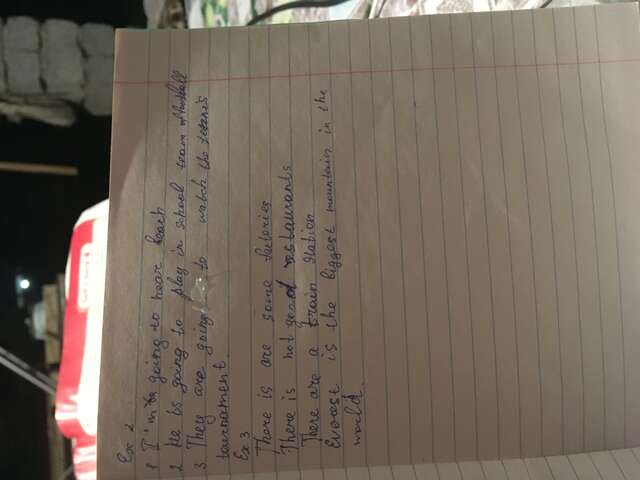 Ex 2
1 I'm going to hear
2 He is going to play in school team
3 They are going to watch the tennis
tournament.
Ex 3
There is are some fectories
There is not good restaurants
There are a train station
Everest is the biggest mountain in the
world.